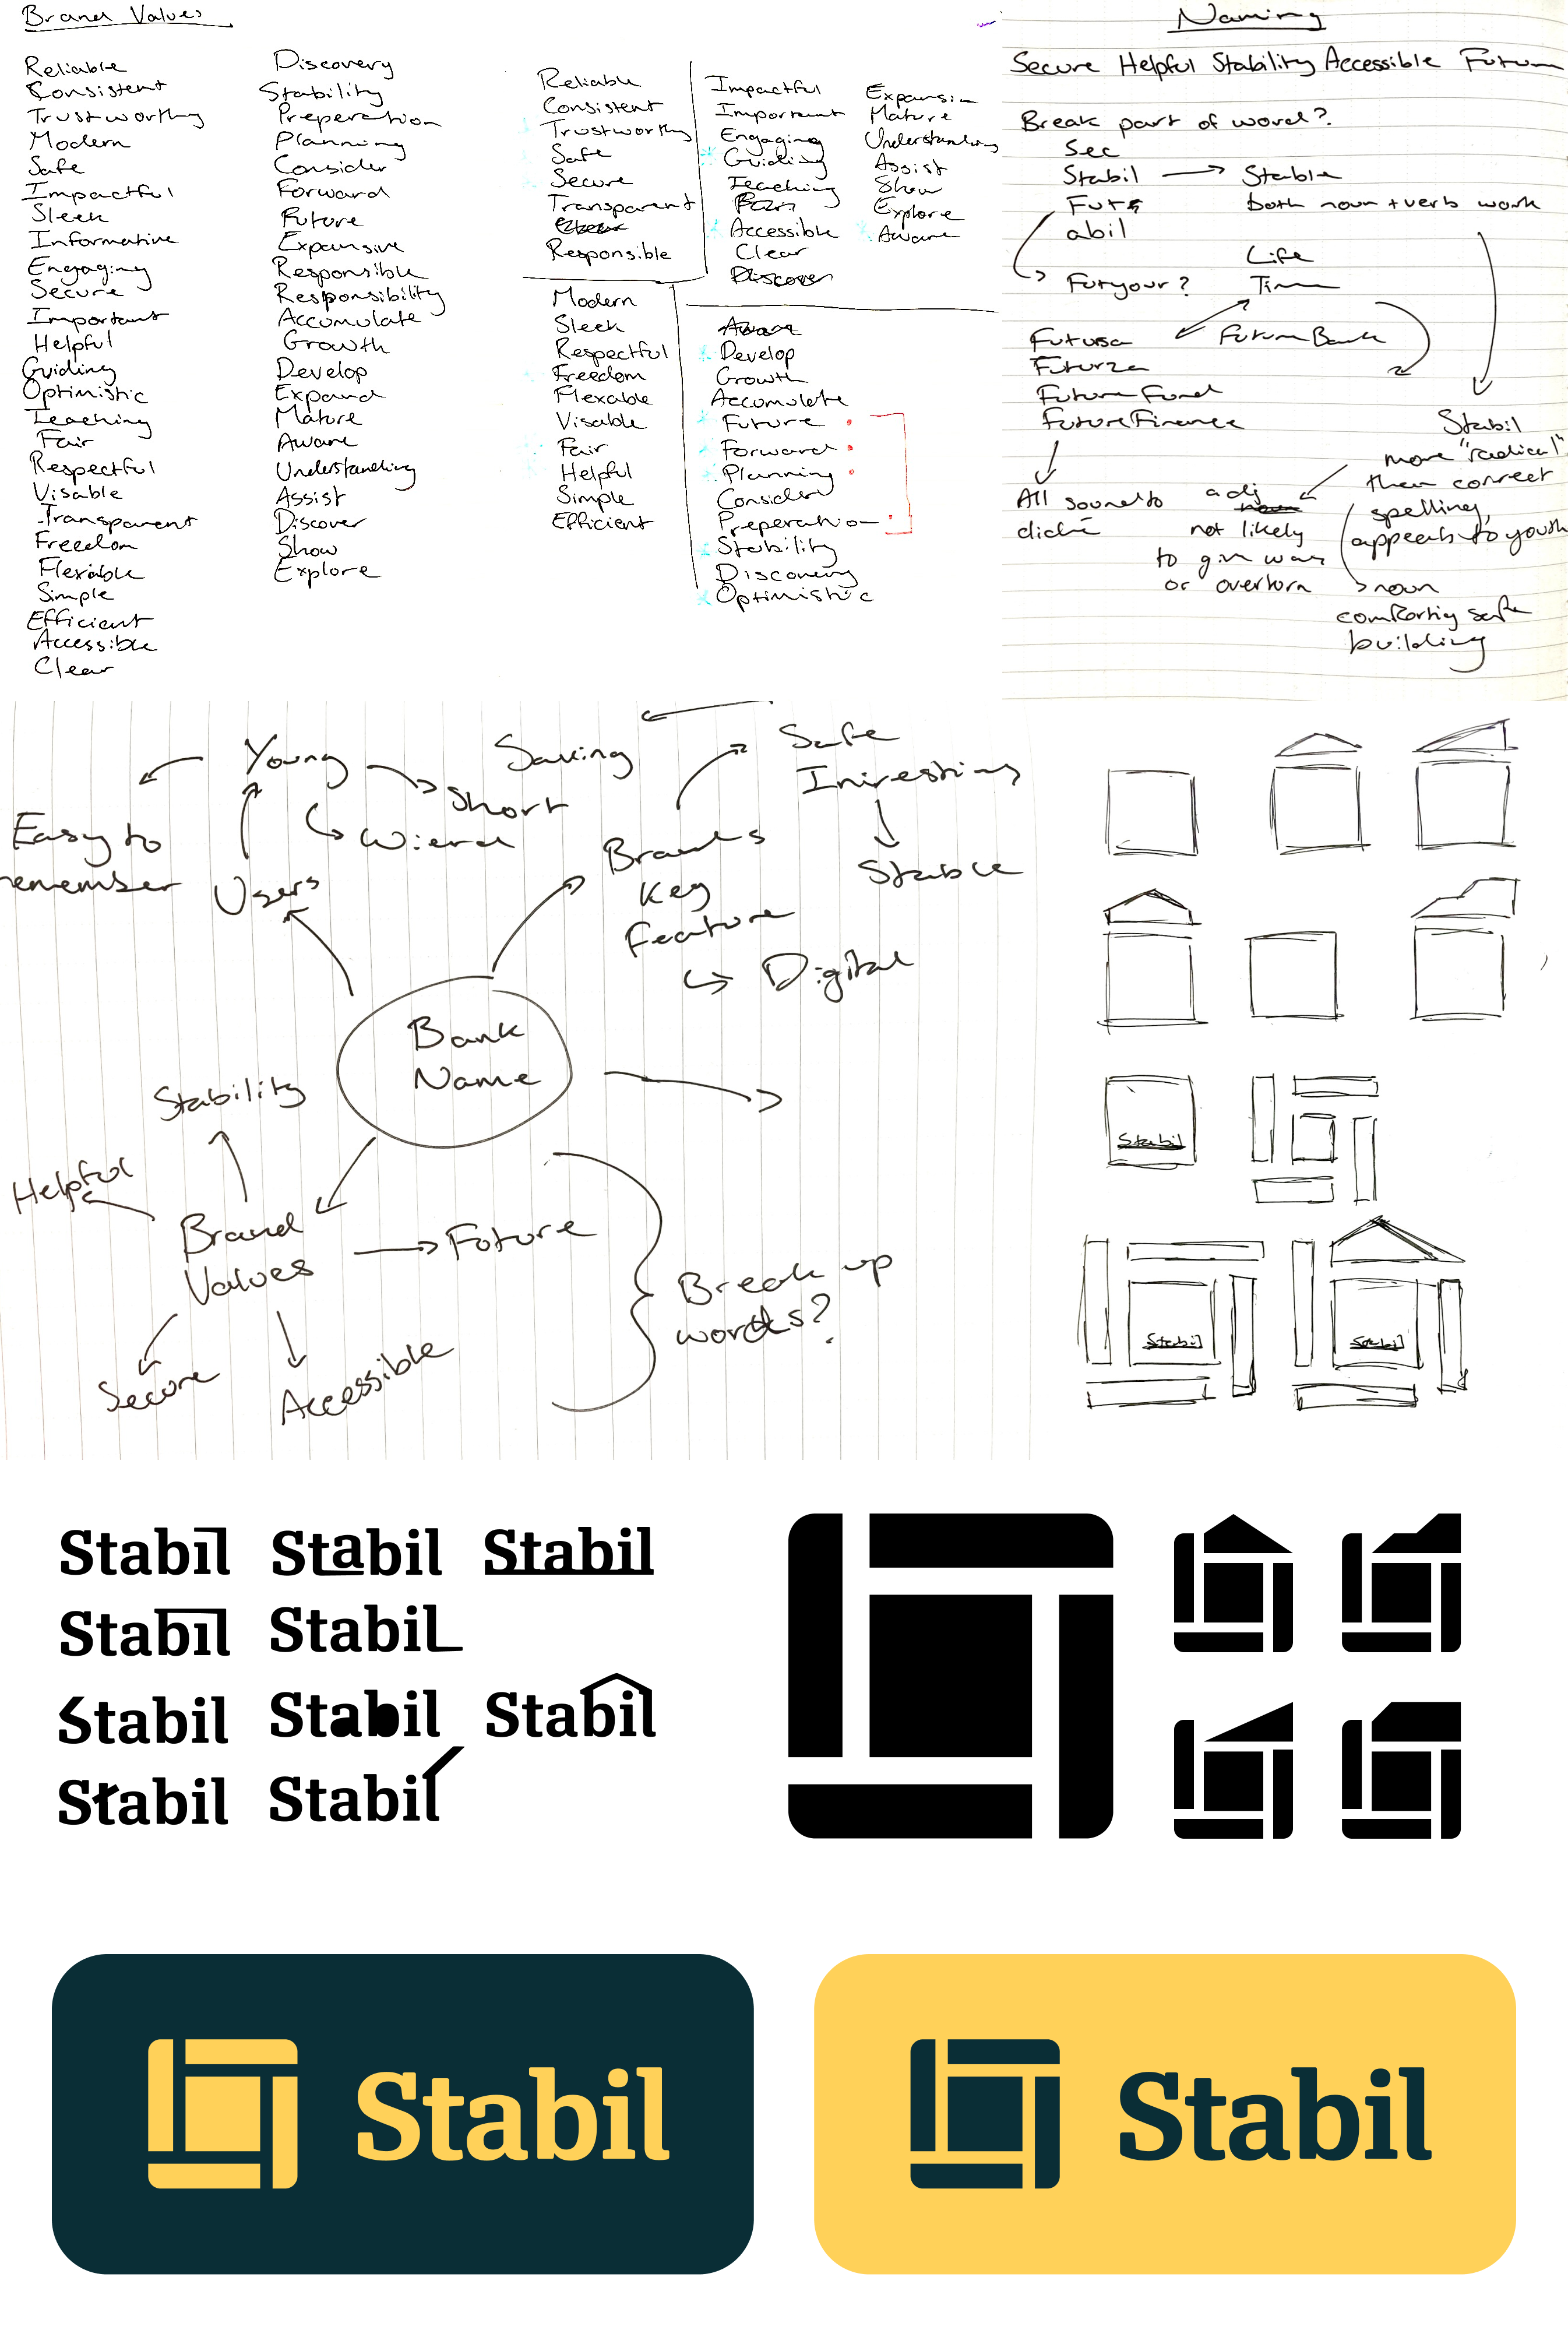 Brand Values
Reliable
Consistent
Trustworthy
Modern
Safe
Impactful
Sleek
Informative
Engaging
Secure
Important
Helpful
Guiding
Optimistic
Teaching
Fair
Respectful
Visable
Transparent
Freedom
Flexable
Simple
Efficient
Accessible
Clear
Discovery
Stability
Preperation
Planning
Consider
Forward
Future
Expansive
Responsible
Responsibility
Accumulate
Growth
Develop
Expand
Mature
Aware
Understanding
Assist
Discover
Show
Explore
Reliable
Consistent
Trustworthy
Safe
Secure
Transparent
Clear
Responsible
Impactful
Important
Engaging
Guiding
Teaching
Accessible
Clear
Discover
Expansion
Mature
Understanding
Assist
Show
Explore
Aware
Modern
Sleek
Respectful
Freedom
Flexable
Visable
Fair
Helpful
Simple
Efficient
Aware
Develop
Growth
Accumulate
Future
Forward
Planning
Consider
Preperation
Stability
Discovery
Optimistic
Naming
Secure Helpful Stability Accessible Future
Break part of word?
Sec
Stabil
abil
Stable
both noun + verb work
Futyour?
Life
Time
Futursa
Futurza
FutureFund
FutureFinance
FutureBank
All sound to
cliché
adj
not likely
to give way
or overturn
Stabil
more "radical"
then correct
spelling,
appeals to youth
noun
comforting safe
building
Young
Short
Wierd
Easy to
remember
Users
Saving
Safe
Iniresting
Stable
Brands
Key
Feature
Digital
Bank
Name
Stability
Helpful
Brand
Values
Future
Secure
Accessible
Break up
words?
Stabil
Stabil
Stabil
Stabil Stabil Stabil
Stabil Stabil
Stabil Stabil Stabil
Stabil Stabil
Stabil
Stabil